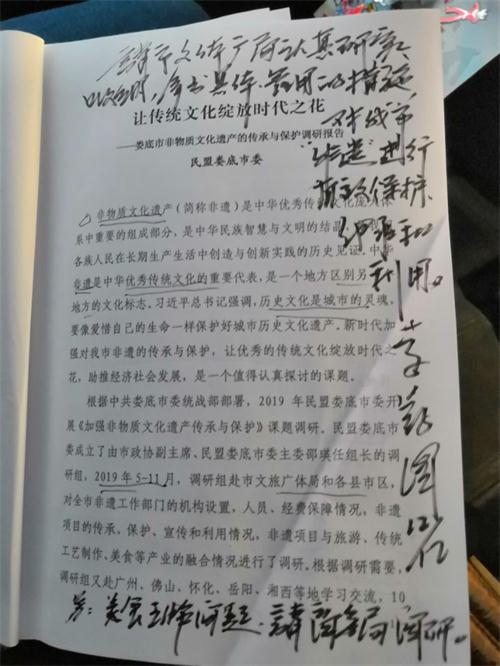 让传统文化绽放时代之花
——娄底市非物质文化遗产的传承与保护调研报告
民盟娄底市委
非物质文化遗产（简称非遗）是中华优秀传统文化
系中重要的组成部分，是中华民族智慧与文明的结晶，
各族人民在长期生产生活中创造与创新实践的历史见证。中华
非遗是中华优秀传统文化的重要代表，是一个地方区别另
地方的文化标志。习近平总书记强调，历史文化是城市的灵魂，
要像爱惜自己的生命一样保护好城市历史文化遗产。新时代加
强对我市非遗的传承与保护，让优秀的传统文化绽放时代之
花，助推经济社会发展，是一个值得认真探讨的课题。
根据中共娄底市委统战部部署，2019 年民盟娄底市委开
展《加强非物质文化遗产传承与保护》课题调研。民盟娄底市
委成立了由市政协副主席、民盟娄底市委主委邵瑛任组长的调
研组，2019 年 5-11 月，调研组赴市文旅广体局和各县市区，
对全市非遗工作部门的机构设置，人员、经费保障情况，非遗
项目的传承、保护、宣传和利用情况，非遗项目与旅游、传统
工艺制作、美食等产业的融合情况进行了调研。根据调研需要，
调研组又赴广州、佛山、怀化、岳阳、湘西等地学习交流，10
市文体广局认真研究
具体、管用的措施
对我市
"非遗"进行
有效保护、
传承和
利用。